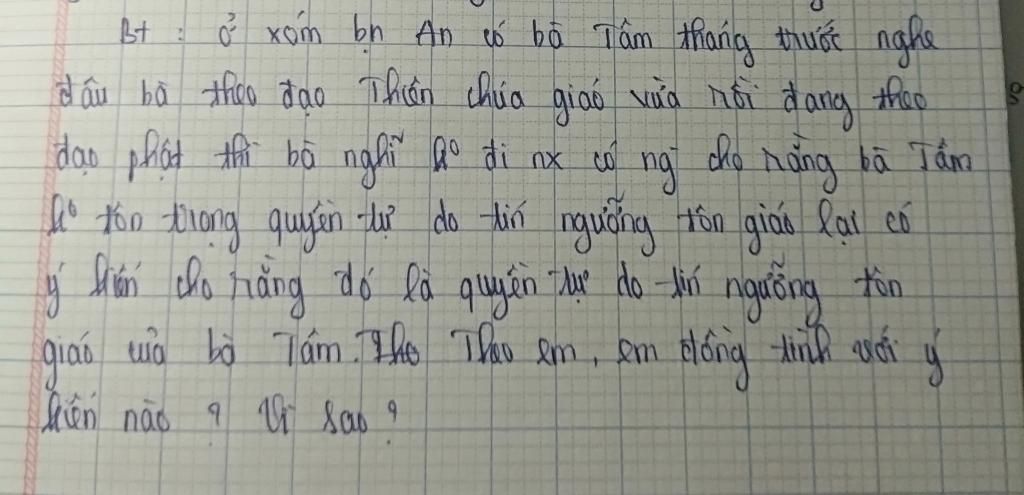 Bt : ở xóm bn An có bà Tám tháng trước nghe
đâu bà theo đạo Thiên chúa giáo vừa rồi đang theo
đạo phật thì bà nghỉ ko đi nx có ng cho rằng bà Tám
ko tôn trọng quyền tự do tín ngưỡng tôn giáo lại có
ý kiến cho rằng đó là quyền tự do tín ngưỡng tôn
giáo của bà Tám. Theo em, em đồng tình với ý
kiến nào ? Vì sao ?